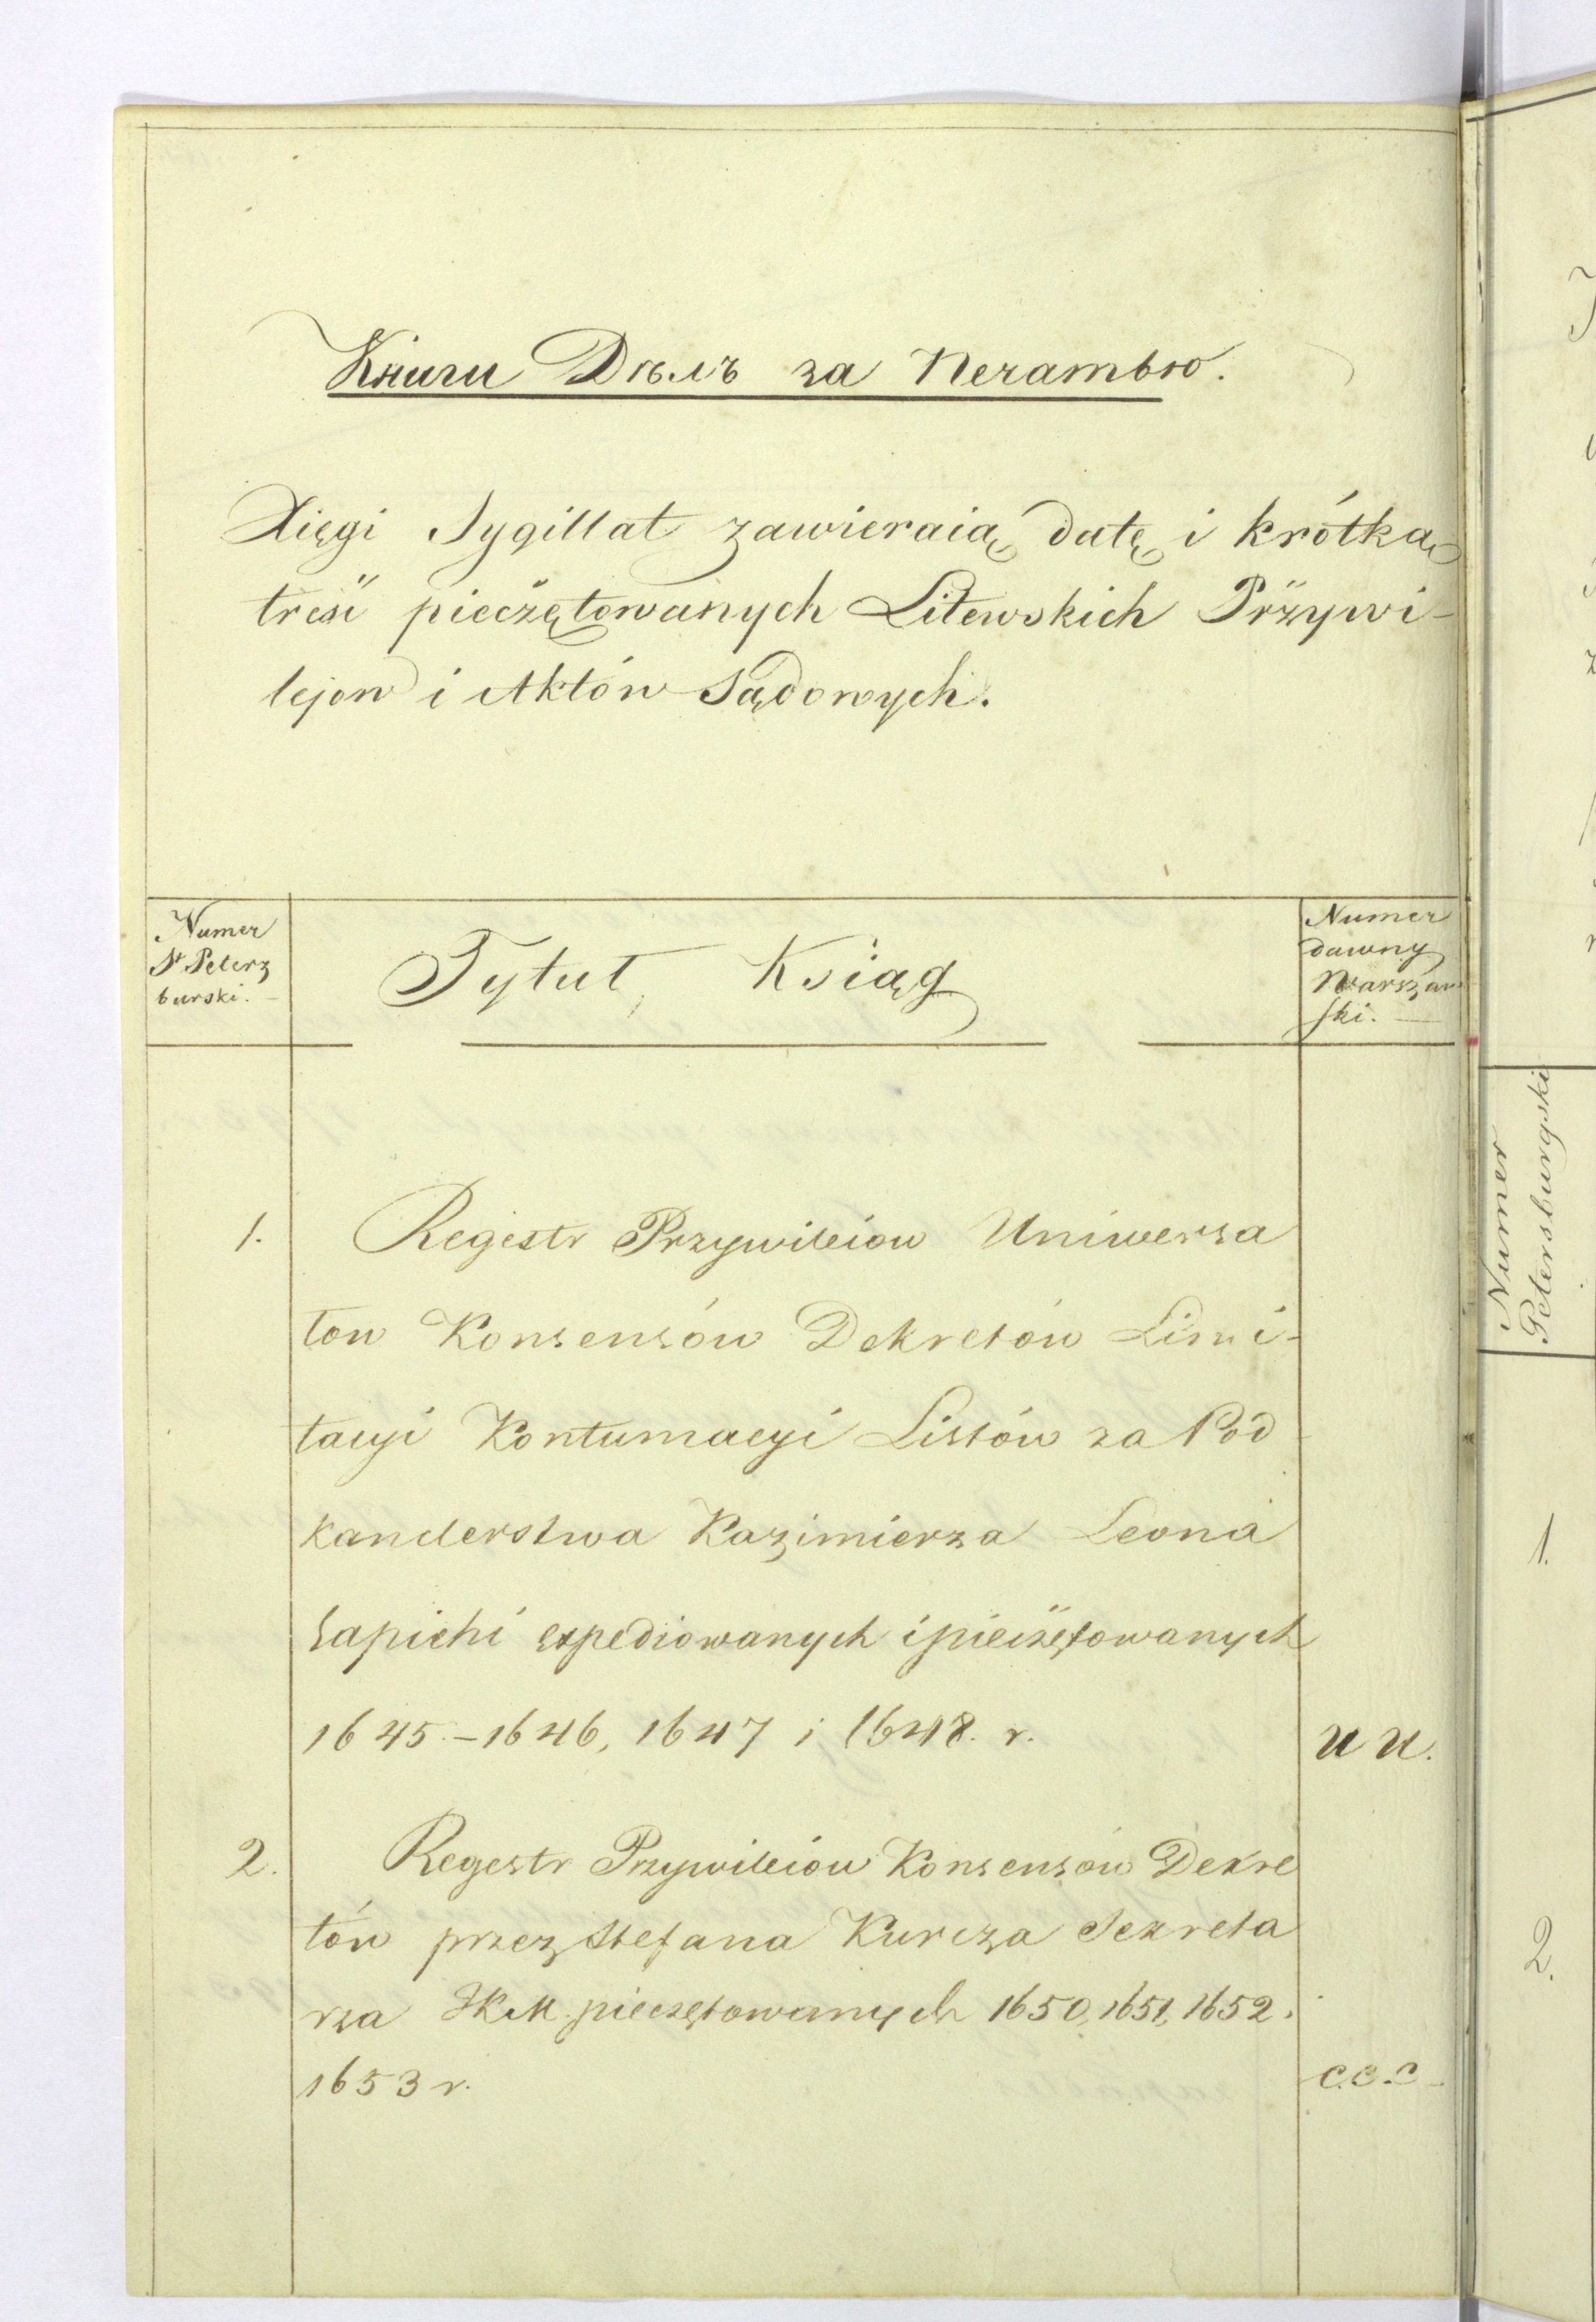 Книги Дѣлъ за Печатью.
Xięgi Sygillat zawieraią datę i krótką
treść pieczętowanych Litewskich Przywi-
lejow i Aktów Sądowych.
Numer
St Peterz
burski.
Tytuł Ksiąg
Numer
dawny
Warszaw
ski.
1.
Regestr Przywileiow Uniwersa
łow Konsensów Dekretów Limi-
tacyi Kontumacyi Listów za Pod
kanclerstwa Kazimierza Leona
Sapiehi expediowanych i pieczętowanych
1645.-1646, 1647 i 1648. r.
UU.
2.
Regestr Przywileiow Konsensów Dekre
tów przez Stefana Kurcza Sekreta
rza JKM. pieczętowanych 1650, 1651, 1652.
1653 r.
C.C.C
Numer
Petersburgski
1.
2.